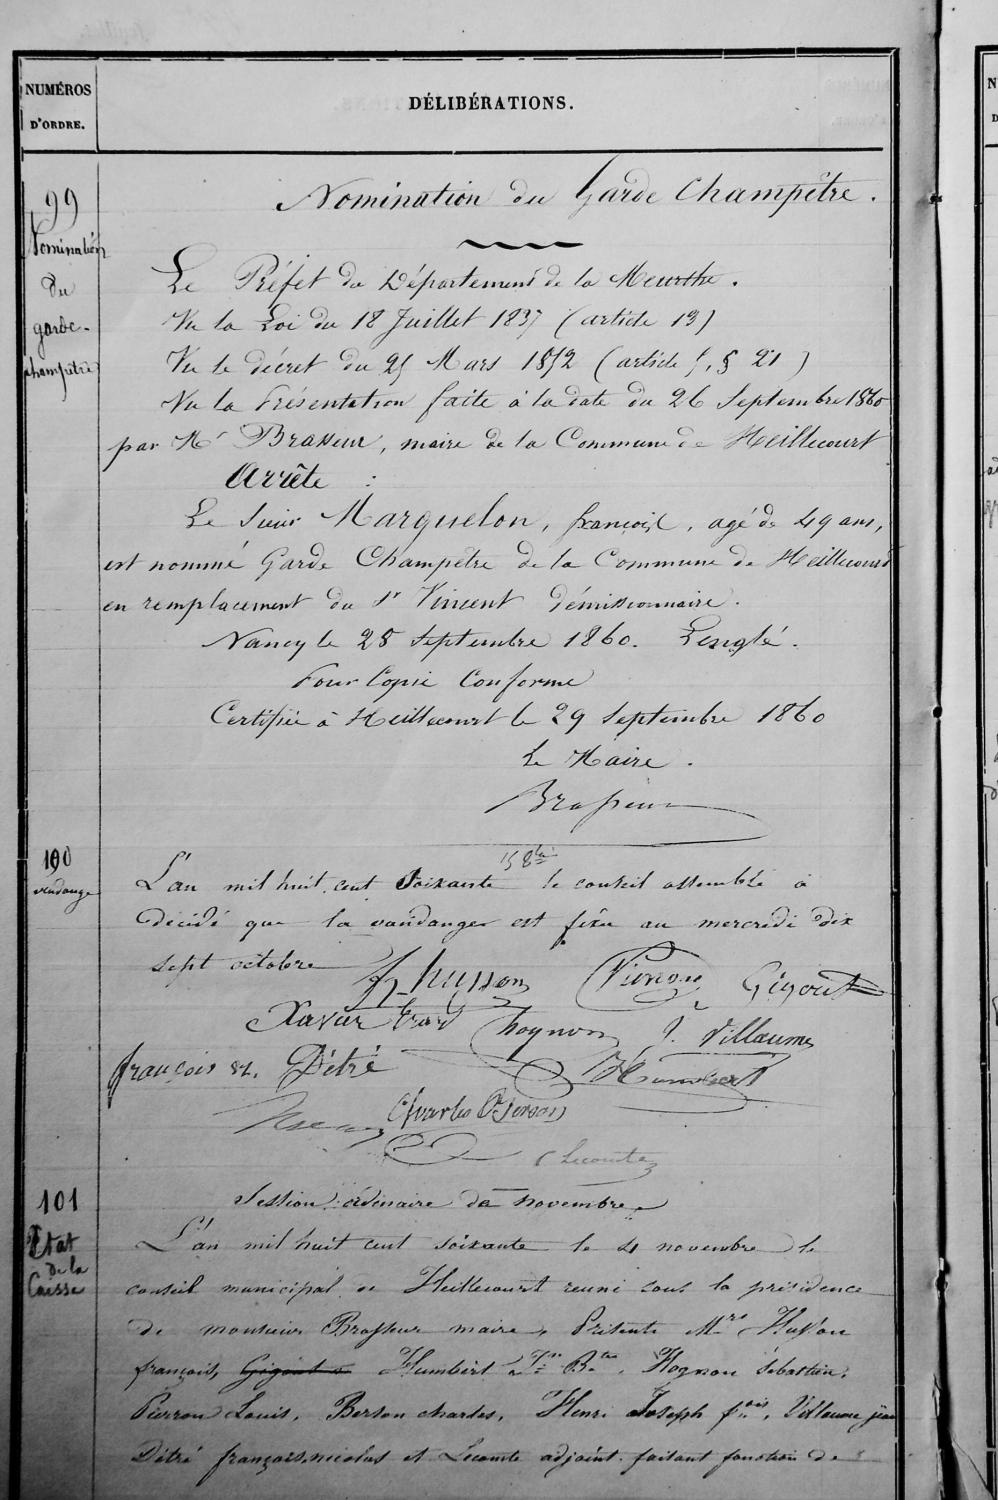 NUMÉROS
D'ORDRE.
DÉLIBÉRATIONS.
99
Nomination
du
garde-
champêtre
Nomination du Garde Champêtre.
Le Préfet du Département de la Meurthe.
Vu la Loi du 18 Juillet 1837 (article 13)
Vu le décret du 25 Mars 1852 (article 5, § 21)
Vu la Présentation faite à la date du 26 Septembre 1860
par Mr Brasseur, maire de la Commune de Heillecourt
Arrête :
Le Sieur Marquelon, françois, agé de 49 ans,
est nommé Garde Champêtre de la Commune de Heillecourt
en remplacement du Sr Vincent démissionnaire.
Nancy le 28 Septembre 1860. Lenglé.
Pour Copie Conforme
Certifiée à Heillecourt le 29 Septembre 1860
Le Maire.
Brasseur
100
vendange
L'an mil huit cent Soixante 15 8bre le conseil assemblé à
décidé que la vandanger est fixu au mercredi dix
sept octobre
f. husson Pierron Gigout
Xavier hognon J. Villaume
françois N. Détré Humbert
Charles Berson
Lecomte
101
Etat
de la
Caisse
Session ordinaire de novembre
L'an mil huit cent soixante le 4 novembre le
conseil municipal de Heillecourt reuni sous la présidence
de monsieur Brasseur maire, Présents Mrs Husson
françois, Gigout Humbert Jn Bte, Hognon Sébastien,
Pierron Louis, Berson charles, Henri Joseph fois, Villaume jean
Détré françois nicolas et Lecomte adjoint faisant fonction de